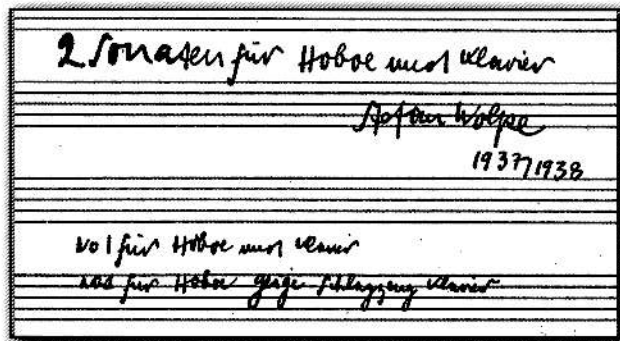 2 Sonaten für Hoboe und Klavier
Stefan Wolpe
1937/1938
No 1 für Hoboe und Klavier
No 2 für Hoboe Geige Schlagzeug Klavier